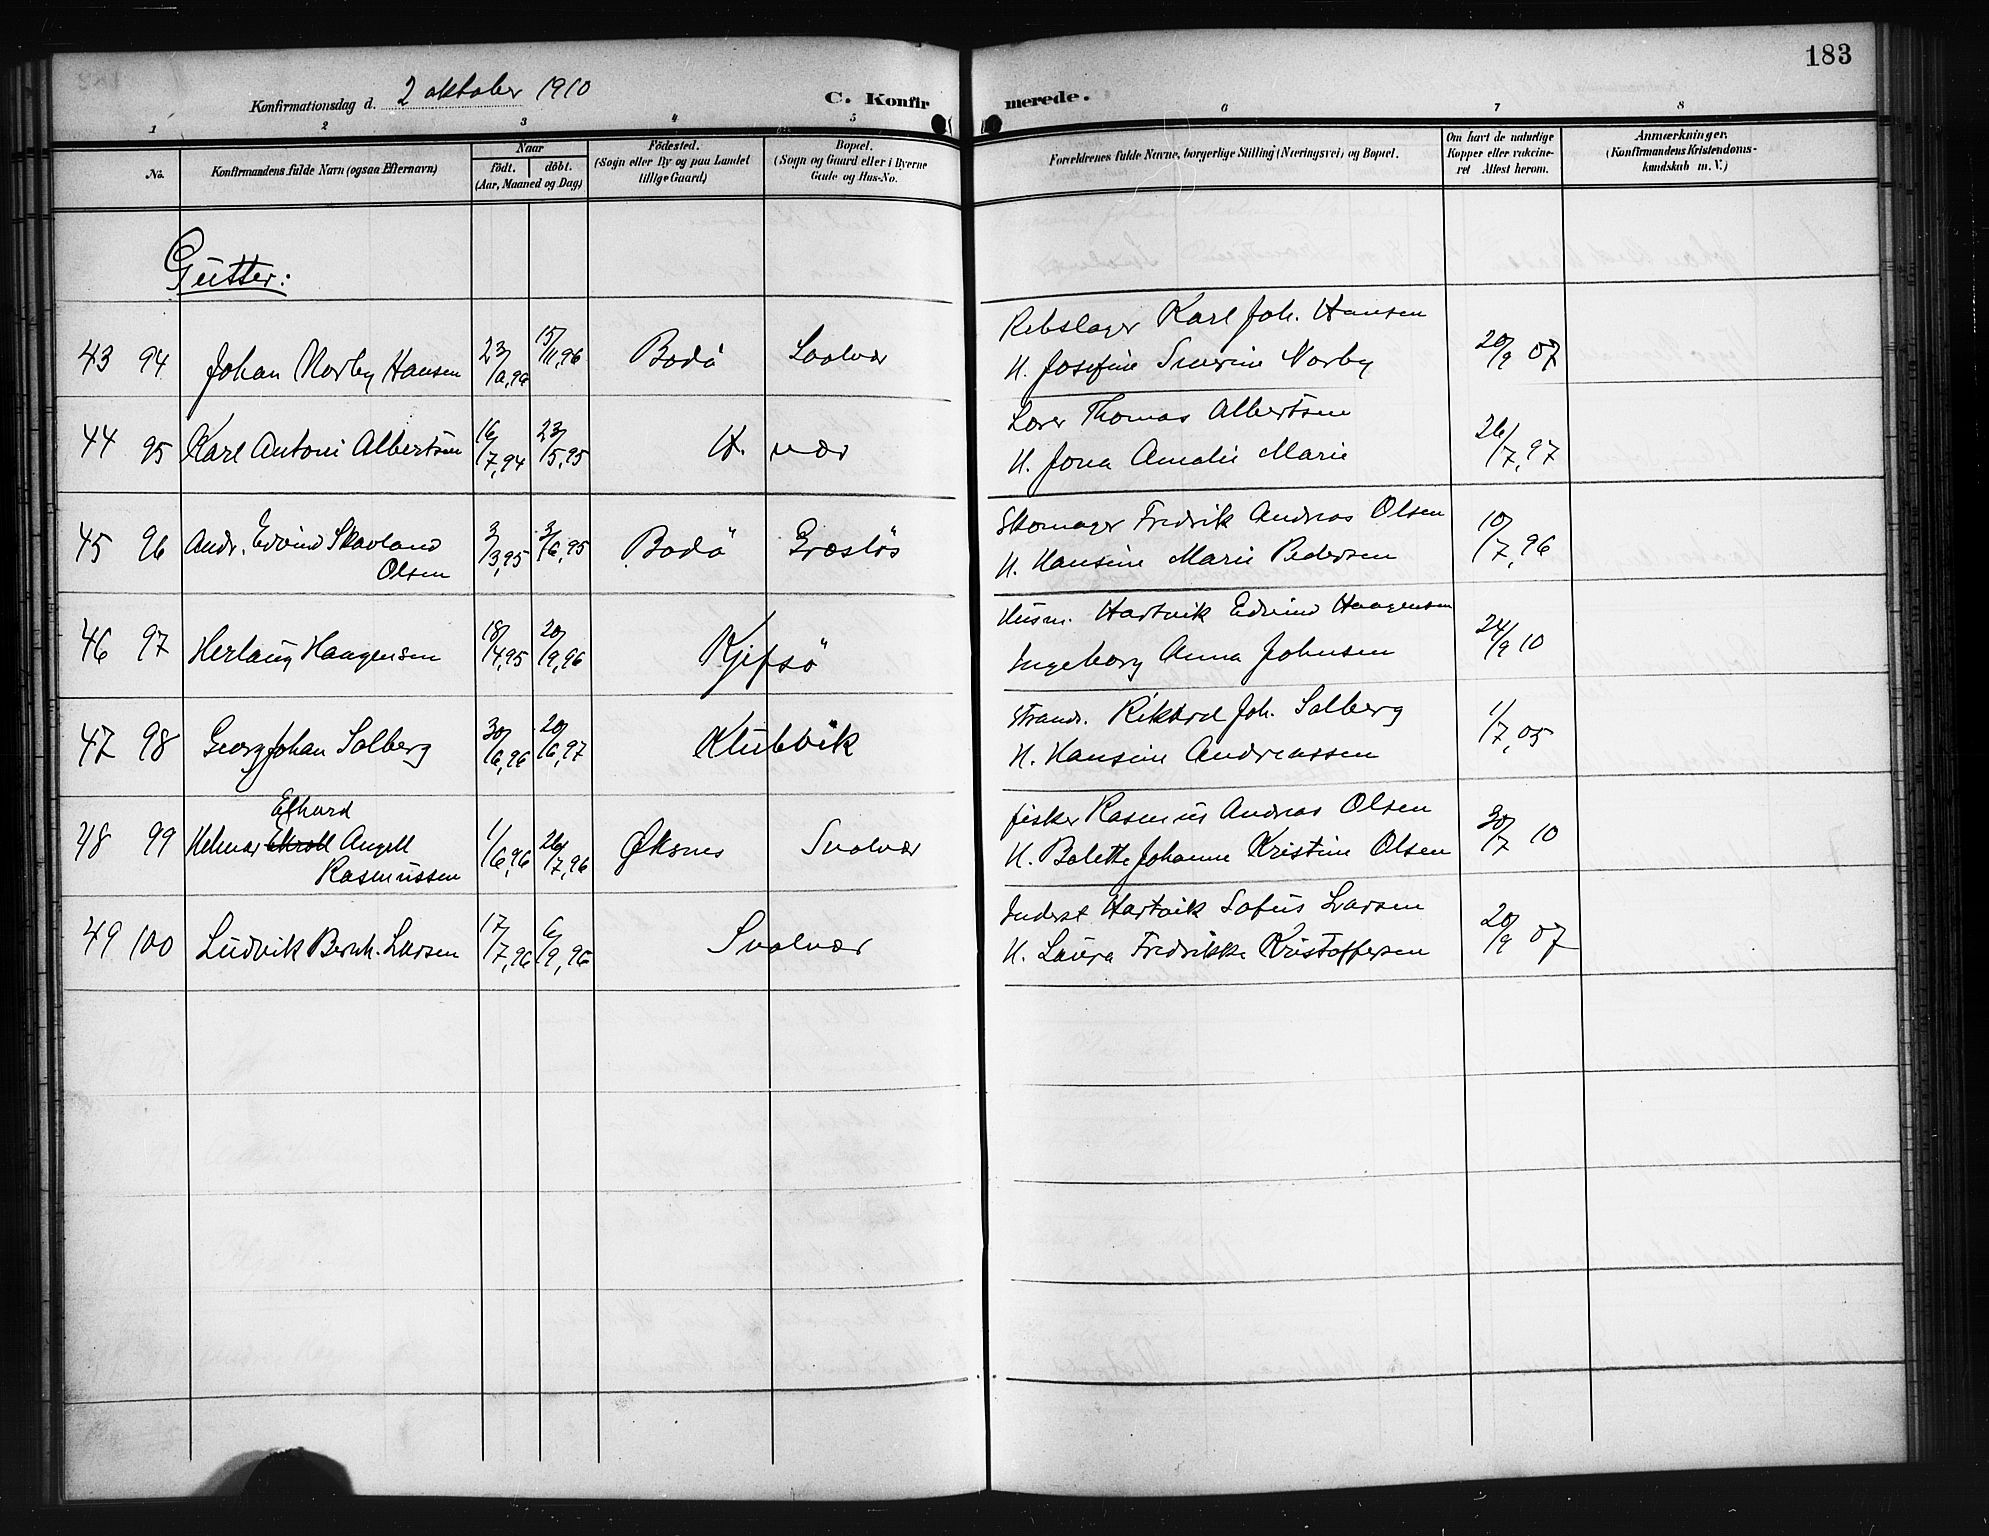 183
Konfirmationsdag d. 2 oktober 1910
C. Konfirmerede.
1 2 3 4 5 6 7 8
No.
Konfirmandens fulde Navn (ogsaa Efternavn)
Naar
födt. döbt.
(Aar, Maaned og Dag)
Födested.
(Sogn eller By og paa Landet
tillige Gaard)
Bopæl.
(Sogn og Gaard eller i Byerne
Gade og Hus-No.
Forældrenes fulde Navne, borgerlige Stilling (Næringsvei) og Bopæl.
Om havt de naturlige
Kopper eller vaccine-
ret Attest herom.
Anmærkninger.
(Konfirmandens Kristendoms-
kundskab m. V.)
Gutter:
43 94 Johan Norby Hansen 23/10,96 15/11,96 Bodö Svolvær
Rebslager Karl Joh. Hansen
H. Josefine Severine Norby 20/9 07
44 95 Karl Antoni Albertsen 16/7,94 23/5,95 H. vær
Lærer Thomas Albertsen
H. Jona Amalie Marie 26/7,97
45 96 Andr. Edvind Skavland
Olsen 3/3,95 3/6,95 Bodö Græslös
Skomager Fredrik Andreas Olsen
H. Hansine Marie Pedersen 10/7,96
46 97 Herlaug Haagensen 18/4,95 20/9,96 Kjefsö
Husm. Hartvik Edvind Haagensen
Ingeborg Anna Johnsen 24/9 10
47 98 Georg Johan Solberg 30/6,96 20/6,97 Klubvik
Strands. Rikard Joh. Solberg
H. Hansine Andreassen 1/7,05
48 99 Helmer Angell
Rasmussen 1/6,96 26/7,96 Øksnes Svolvær
fisker Rasmus Andreas Olsen
H. Balette Johanne Kristine Olsen 30/7 10
49 100 Ludvik Bernh. Larsen 17/7,96 6/9,96 Svolvær
Inderst Hartvik Sofus Larsen
H. Laura Fredrikke Kristoffersen 20/9 07